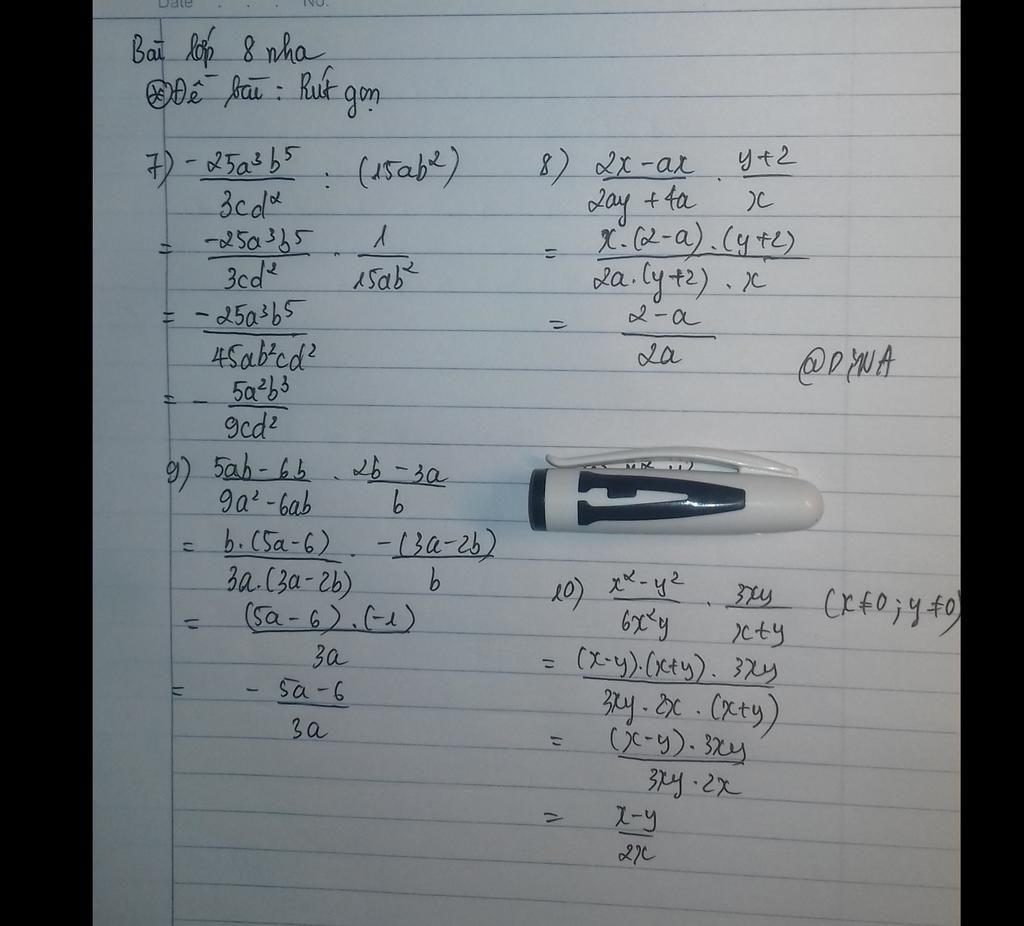 Date . . . No.
Bài lớp 8 nha
* Đề bài : Rút gọn
7) -25a³b⁵/3cd² : (15ab²)
= -25a³b⁵/3cd² . 1/15ab²
= -25a³b⁵/45ab²cd²
= - 5a²b³/9cd²
8) 2x-ax/2ay+4a . y+2/x
= x.(2-a).(y+2)/2a.(y+2).x
= 2-a/2a
@DINA
9) 5ab-6b/9a²-6ab . 2b-3a/b
= b.(5a-6)/3a.(3a-2b) . -(3a-2b)/b
= (5a-6).(-1)/3a
= - 5a-6/3a
10) x²-y²/6x²y . 3xy/x+y (x≠0; y≠0)
= (x-y).(x+y).3xy/3xy.2x.(x+y)
= (x-y).3xy/3xy.2x
= x-y/2x